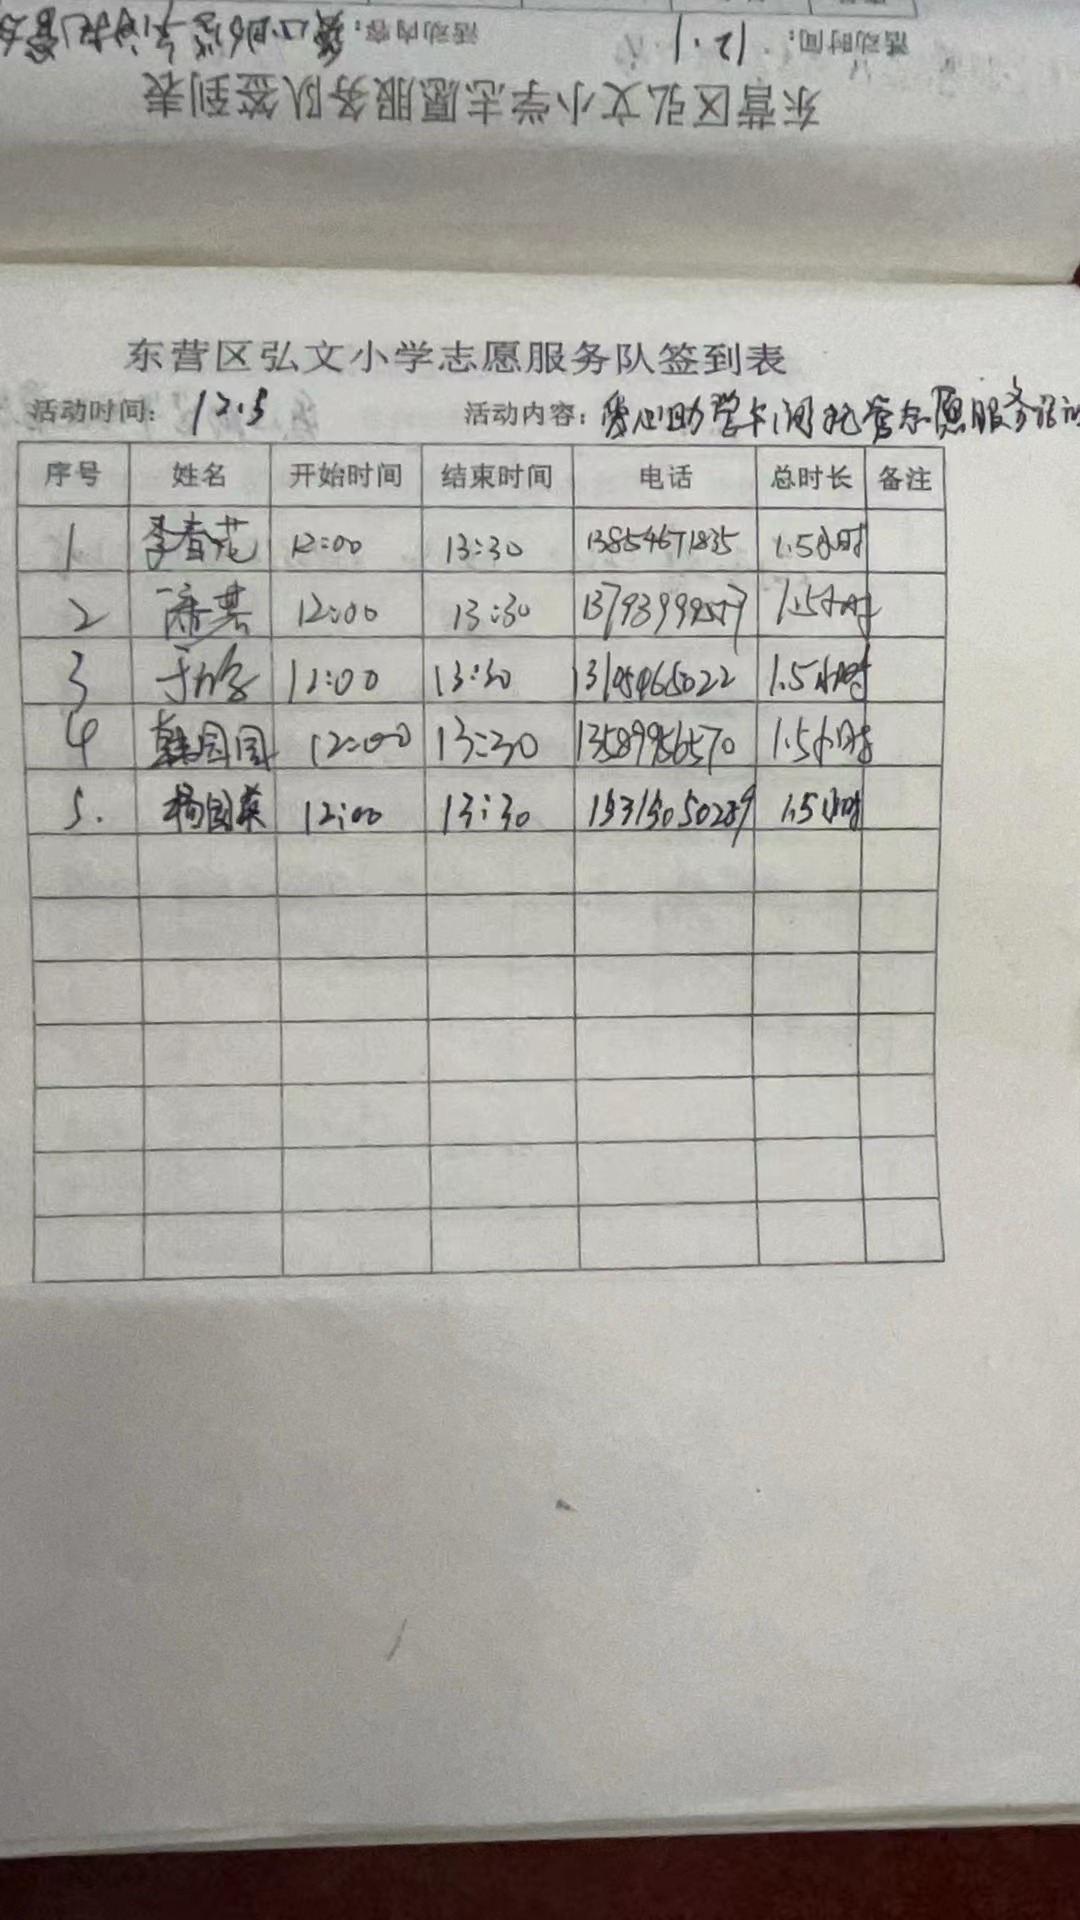 活动时间： 12.1 活动内容：
东营区弘文小学志愿服务队签到表
东营区弘文小学志愿服务队签到表
活动时间： 12.5 活动内容：爱心助学午间托管志愿服务活动
序号 姓名 开始时间 结束时间 电话 总时长 备注
1 李春花 12:00 13:30 13854671835 1.5小时
2 12:00 13:30 1.5小时
3 12:00 13:30 1.5小时
4 韩园园 12:00 13:30 13589956570 1.5小时
5. 杨国英 12:00 13:30 15315050289 1.5小时